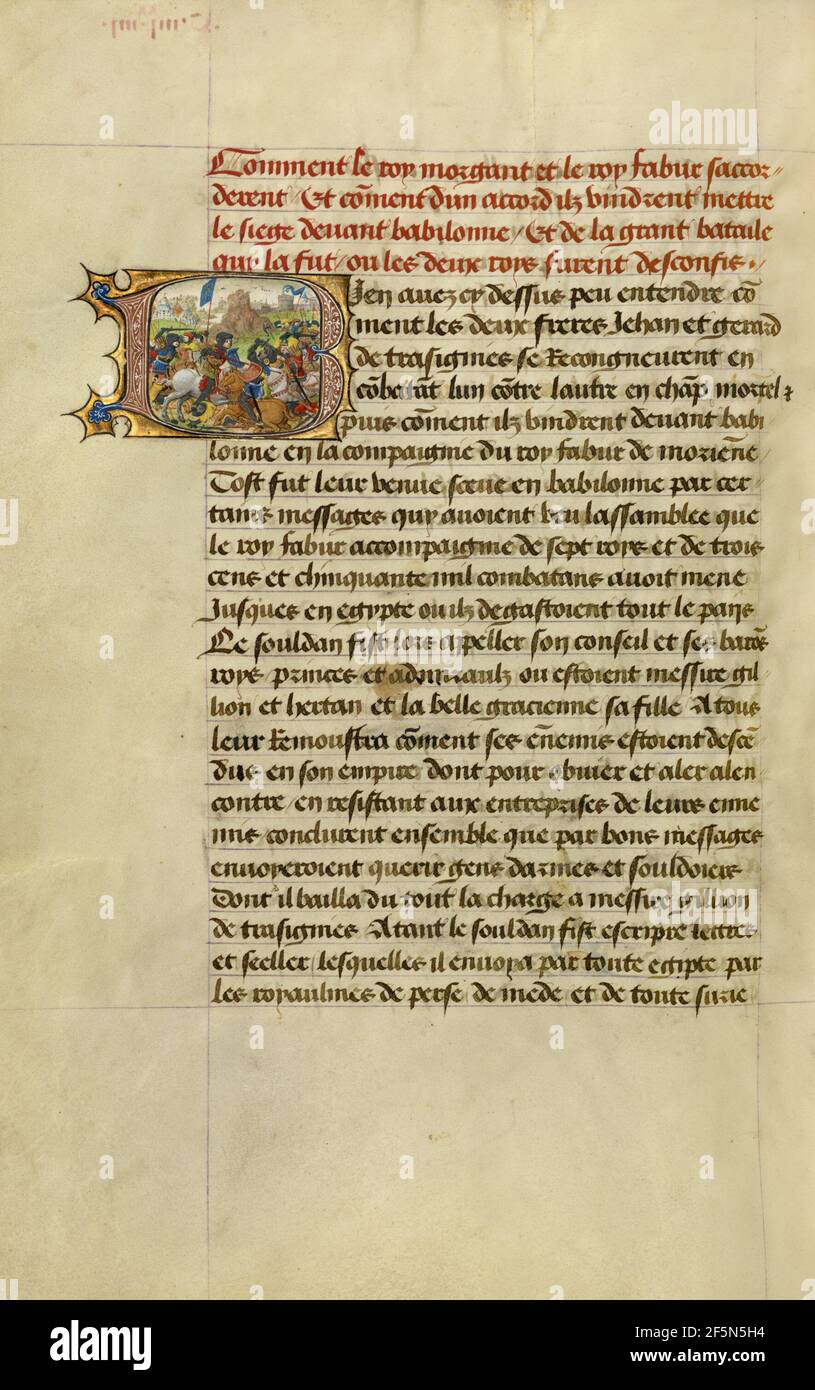 Comment le roy morgant et le roy fabur saccor-
derent / Et cōment dun accord ilz vindrent mettre
le siege devant babilonne / Et de la grant bataille
quy la fut / ou les deux roys furent desconfis .
Bien avez cy dessus peu entendre cō
ment les deux freres Jehan et gerard
de trasignies se Recongneurent en
cōbatāt lun cōtre lautre en chāp mortel
puis cōment ilz vindrent devant babi
lonne en la compaignie du roy fabur de moriēne
Tost fut leur venue sceue en babilonne par cer
tains messages quy avoient veu lassamblee que
le roy fabur accompaignie de sept roys et de trois
cens et chinquante mil combatans avoit mene
Jusques en egypte ou ilz degastoient tout le pays
Le souldan fist lors apeller son conseil et ses barōs
roys princes et admiraulz ou estoient messire gil
lion et hertan et la belle gracienne sa fille A tous
leur Remoustra cōment ses ēnemis estoient descē
dus en son empire dont pour obvier et aler alen
contre / en resistant aux entreprises de leurs enne
mis conclurent ensemble que par bons messages
envoyeroient querir gens darmes et souldoiers
Dont il bailla du tout la charge a messire gillion
de trasignies Atant le souldan fist escripre lettres
et seeller / lesquelles il envoya par toute egipte par
les royaulmes de perse de mede et de toute surie
alamy
Image ID: 2F5N5H4
www.alamy.com